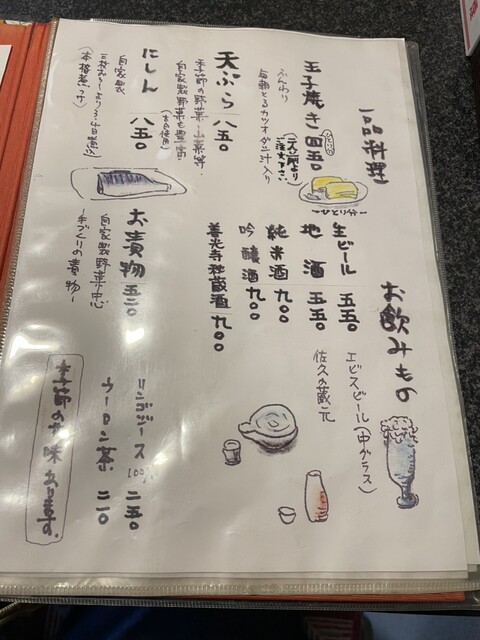 一品料理
玉子焼き 四五〇
ひとり分
(二人前より
ご注文下さい)
ふんわり
自家とるカツオダシ汁入り
ーひとり分ー
天ぷら 八五〇
季節の野菜・山菜等
自家製野菜も豊富
にしん 八五〇
自家製
(本格煮つけ)
お漬物 五三〇
自家製野菜中心
手づくりの漬物
お飲みもの
生ビール 五五〇
エビスビール(中グラス)
地酒 五五〇
佐久の蔵元
純米酒 九〇〇
吟醸酒 九〇〇
善光寺秘蔵酒 九〇〇
リンゴジュース 100% 二五〇
ウーロン茶 二一〇
季節の大味あります。